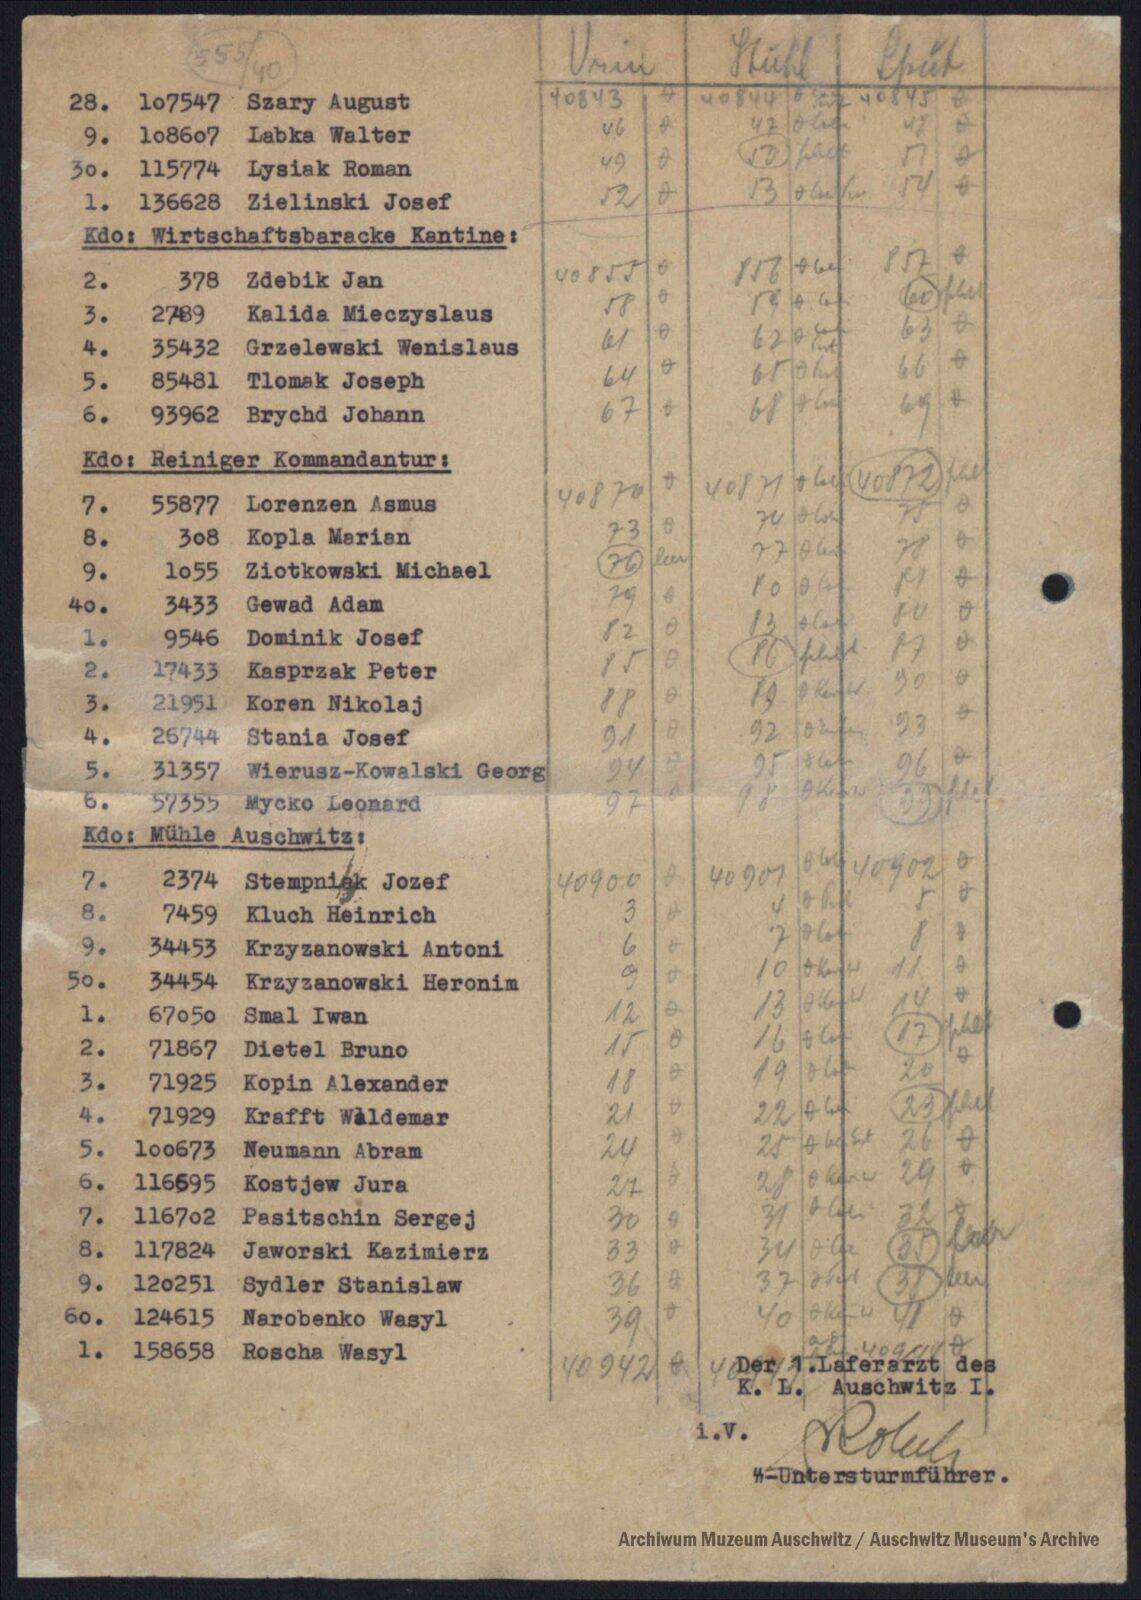 555/40
Urin Stuhl Sput
28. 1o7547 Szary August 40843 θ 40844 θ 40845 θ
9. 1o86o7 Labka Walter 46 θ 47 θ 48 θ
3o. 115774 Lysiak Roman 49 θ 50 fehlt 51 θ
1. 136628 Zielinski Josef 52 θ 53 θ 54 θ
Kdo: Wirtschaftsbaracke Kantine:
2. 378 Zdebik Jan 40855 θ 856 θ 857 θ
3. 2789 Kalida Mieczyslaus 58 θ 59 θ 60 fehlt
4. 35432 Grzelewski Wenislaus 61 θ 62 θ 63 θ
5. 85481 Tlomak Joseph 64 θ 65 θ 66 θ
6. 93962 Brychd Johann 67 θ 68 θ 69 θ
Kdo: Reiniger Kommandantur:
7. 55877 Lorenzen Asmus 40870 θ 40871 θ 40872 fehlt
8. 3o8 Kopla Marian 73 θ 74 θ 75 θ
9. 1o55 Ziotkowski Michael 76 leer 77 θ 78 θ
4o. 3433 Gewad Adam 79 θ 80 θ 81 θ
1. 9546 Dominik Josef 82 θ 83 θ 84 θ
2. 17433 Kasprzak Peter 85 θ 86 fehlt 87 θ
3. 21951 Koren Nikolaj 88 θ 89 θ 90 θ
4. 26744 Stania Josef 91 θ 92 θ 93 θ
5. 31357 Wierusz-Kowalski Georg 94 θ 95 θ 96 θ
6. 57355 Mycko Leonard 97 θ 98 θ 99 fehlt
Kdo: Mühle Auschwitz:
7. 2374 Stempniak Jozef 40900 θ 40901 θ 40902 θ
8. 7459 Kluch Heinrich 3 θ 4 θ 5 θ
9. 34453 Krzyzanowski Antoni 6 θ 7 θ 8 θ
5o. 34454 Krzyzanowski Heronim 9 θ 10 θ 11 θ
1. 67o5o Smal Iwan 12 θ 13 θ 14 θ
2. 71867 Dietel Bruno 15 θ 16 θ 17 fehlt
3. 71925 Kopin Alexander 18 θ 19 θ 20 θ
4. 71929 Krafft Waldemar 21 θ 22 θ 23 fehlt
5. 1oo673 Neumann Abram 24 θ 25 θ 26 θ
6. 116695 Kostjew Jura 27 θ 28 θ 29 θ
7. 1167o2 Pasitschin Sergej 30 θ 31 θ 32 θ
8. 117824 Jaworski Kazimierz 33 θ 34 θ 35 leer
9. 12o251 Sydler Stanislaw 36 θ 37 θ 38 leer
6o. 124615 Narobenko Wasyl 39 θ 40 θ 41 θ
1. 158658 Roscha Wasyl 40942 θ θ
Der 1.Laferarzt des
K. L. Auschwitz I.
i.V.
ϟϟ-Untersturmführer.
Archiwum Muzeum Auschwitz / Auschwitz Museum's Archive